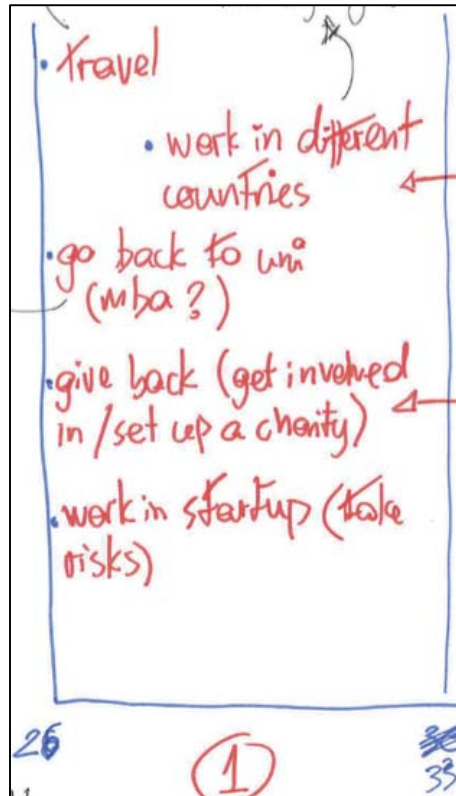 • travel
• work in different
countries
• go back to uni
(mba?)
• give back (get involved
in / set up a charity)
• work in startup (take
risks)
26
1
33